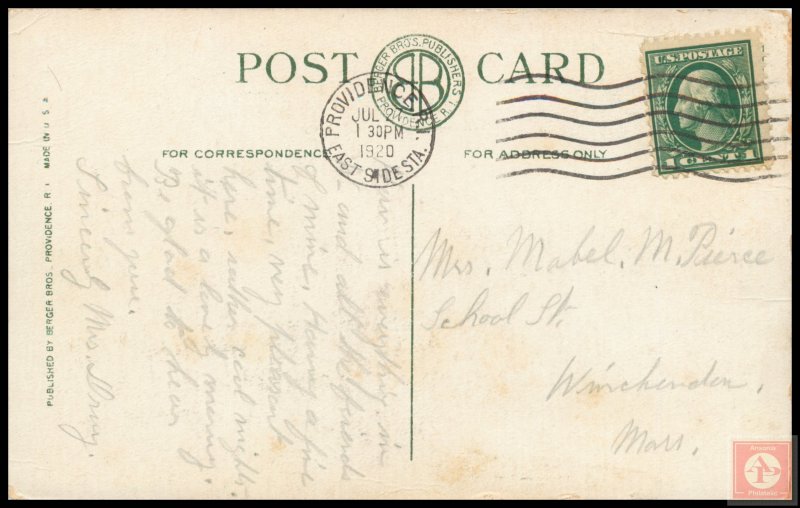 POST CARD
BERGER BROS. PUBLISHERS
PROVIDENCE R. I.
BB
PROVIDENCE
JUL
1 30PM
1920
EAST SIDE STA.
U.S. POSTAGE
1 CENT 1
FOR CORRESPONDENCE
FOR ADDRESS ONLY
is everything in
and all the friends
of mine. Having a fine
time, very pleasant
here, rather cool nights.
it is a lovely morning.
Be glad to hear
from you.
Sincerely Mrs.
Mrs. Mabel. M. Pierce
School St.
Winchendon,
Mass.
PUBLISHED BY BERGER BROS. PROVIDENCE, R. I. MADE IN U. S. A.
Ansonia
AP
Philatelic